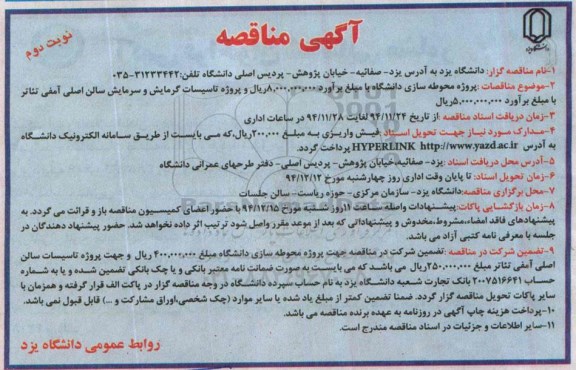 آگهی مناقصه
نوبت دوم
دانشگاه یزد
۱-نام مناقصه گزار: دانشگاه یزد به آدرس یزد- صفائیه- خیابان پژوهش- پردیس اصلی دانشگاه تلفن:۳۱۲۳۳۴۴۲-۰۳۵
۲-موضوع مناقصات: پروژه محوطه سازی دانشگاه با مبلغ برآورد ۸,۰۰۰,۰۰۰,۰۰۰ریال و پروژه تاسیسات گرمایش و سرمایش سالن اصلی آمفی تئاتر
با مبلغ برآورد ۵,۰۰۰,۰۰۰,۰۰۰ریال
۳-زمان دریافت اسناد مناقصه از تاریخ ۹۴/۱۱/۲۴ لغایت ۹۴/۱۱/۲۸ در ساعات اداری
۴-مدارک مورد نیاز جهت تحویل اسناد :فیش واریزی به مبلغ ۲۰۰,۰۰۰ریال،که می بایست از طریق سامانه الکترونیک دانشگاه
به آدرس HYPERLINK http://www.yazd.ac.ir پرداخت گردد.
۵-آدرس محل دریافت اسناد :یزد- صفائیه،خیابان پژوهش- پردیس اصلی- دفتر طرحهای عمرانی دانشگاه
۶-زمان تحویل اسناد: تا پایان وقت اداری روز چهارشنبه مورخ ۹۴/۱۲/۱۲
۷-محل برگزاری مناقصه:دانشگاه یزد- سازمان مرکزی- حوزه ریاست- سالن جلسات
۸-زمان بازگشایی پاکات:پیشنهادات واصله ساعت ۱۱روز شنبه مورخ ۹۴/۱۲/۱۵ با حضور اعضای کمیسیون مناقصه باز و قرائت می گردد. به
پیشنهادهای فاقد امضاء،مشروط،مخدوش و پیشنهاداتی که بعد از موعد مقرر واصل شود ترتیب اثر داده نخواهد شد. حضور پیشنهاد دهندگان در
جلسه با معرفی نامه کتبی آزاد می باشد.
۹-تضمین شرکت در مناقصه :تضمین شرکت در مناقصه جهت پروژه محوطه سازی دانشگاه مبلغ ۴۰۰,۰۰۰,۰۰۰ ریال و جهت پروژه تاسیسات سالن
اصلی آمفی تئاتر مبلغ ۲۵۰,۰۰۰,۰۰۰ریال می باشد که می بایست به صورت ضمانت نامه معتبر بانکی و یا چک بانکی تضمین شده و یا به شماره
حساب ۲۰۰۷۵۱۶۶۴۱ بانک تجارت شعبه دانشگاه یزد به نام حساب سپرده دانشگاه در وجه مناقصه گزار در پاکت الف قرار گرفته و همزمان با
سایر پاکات تحویل مناقصه گزار گردد. ضمنا تضمین کمتر از مبلغ یاد شده یا سایر موارد (چک شخصی،اوراق مشارکت و ...) قابل قبول نمی باشد.
۱۰-پرداخت هزینه چاپ آگهی در روزنامه به عهده برنده مناقصه می باشد.
۱۱-سایر اطلاعات و جزئیات در اسناد مناقصه مندرج است.
روابط عمومی دانشگاه یزد